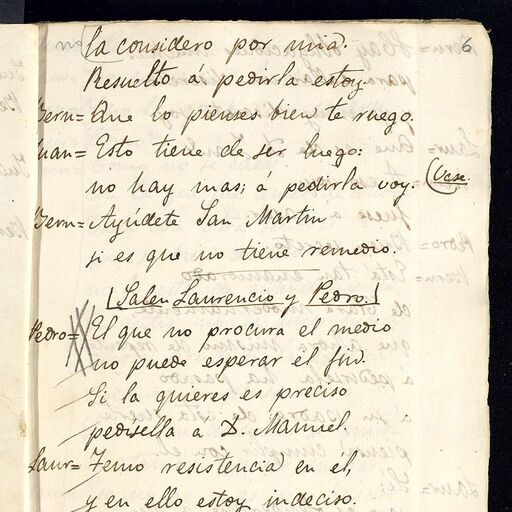 6
la considero por mia.
Resuelto á pedirla estoy.
Bern= Que lo pienses bien te ruego.
Juan= Esto tiene de ser luego:
no hay mas; á pedirla voy. (Vase.
Bern= Ayúdete San Martin
si es que no tiene remedio.
(Salen Laurencio y Pedro.)
Pedro= El que no procura el medio
no puede esperar el fin.
Si la quieres es preciso
pedisella á D. Manuel.
Laur= Temo resistencia en el,
y en ello estoy indeciso.